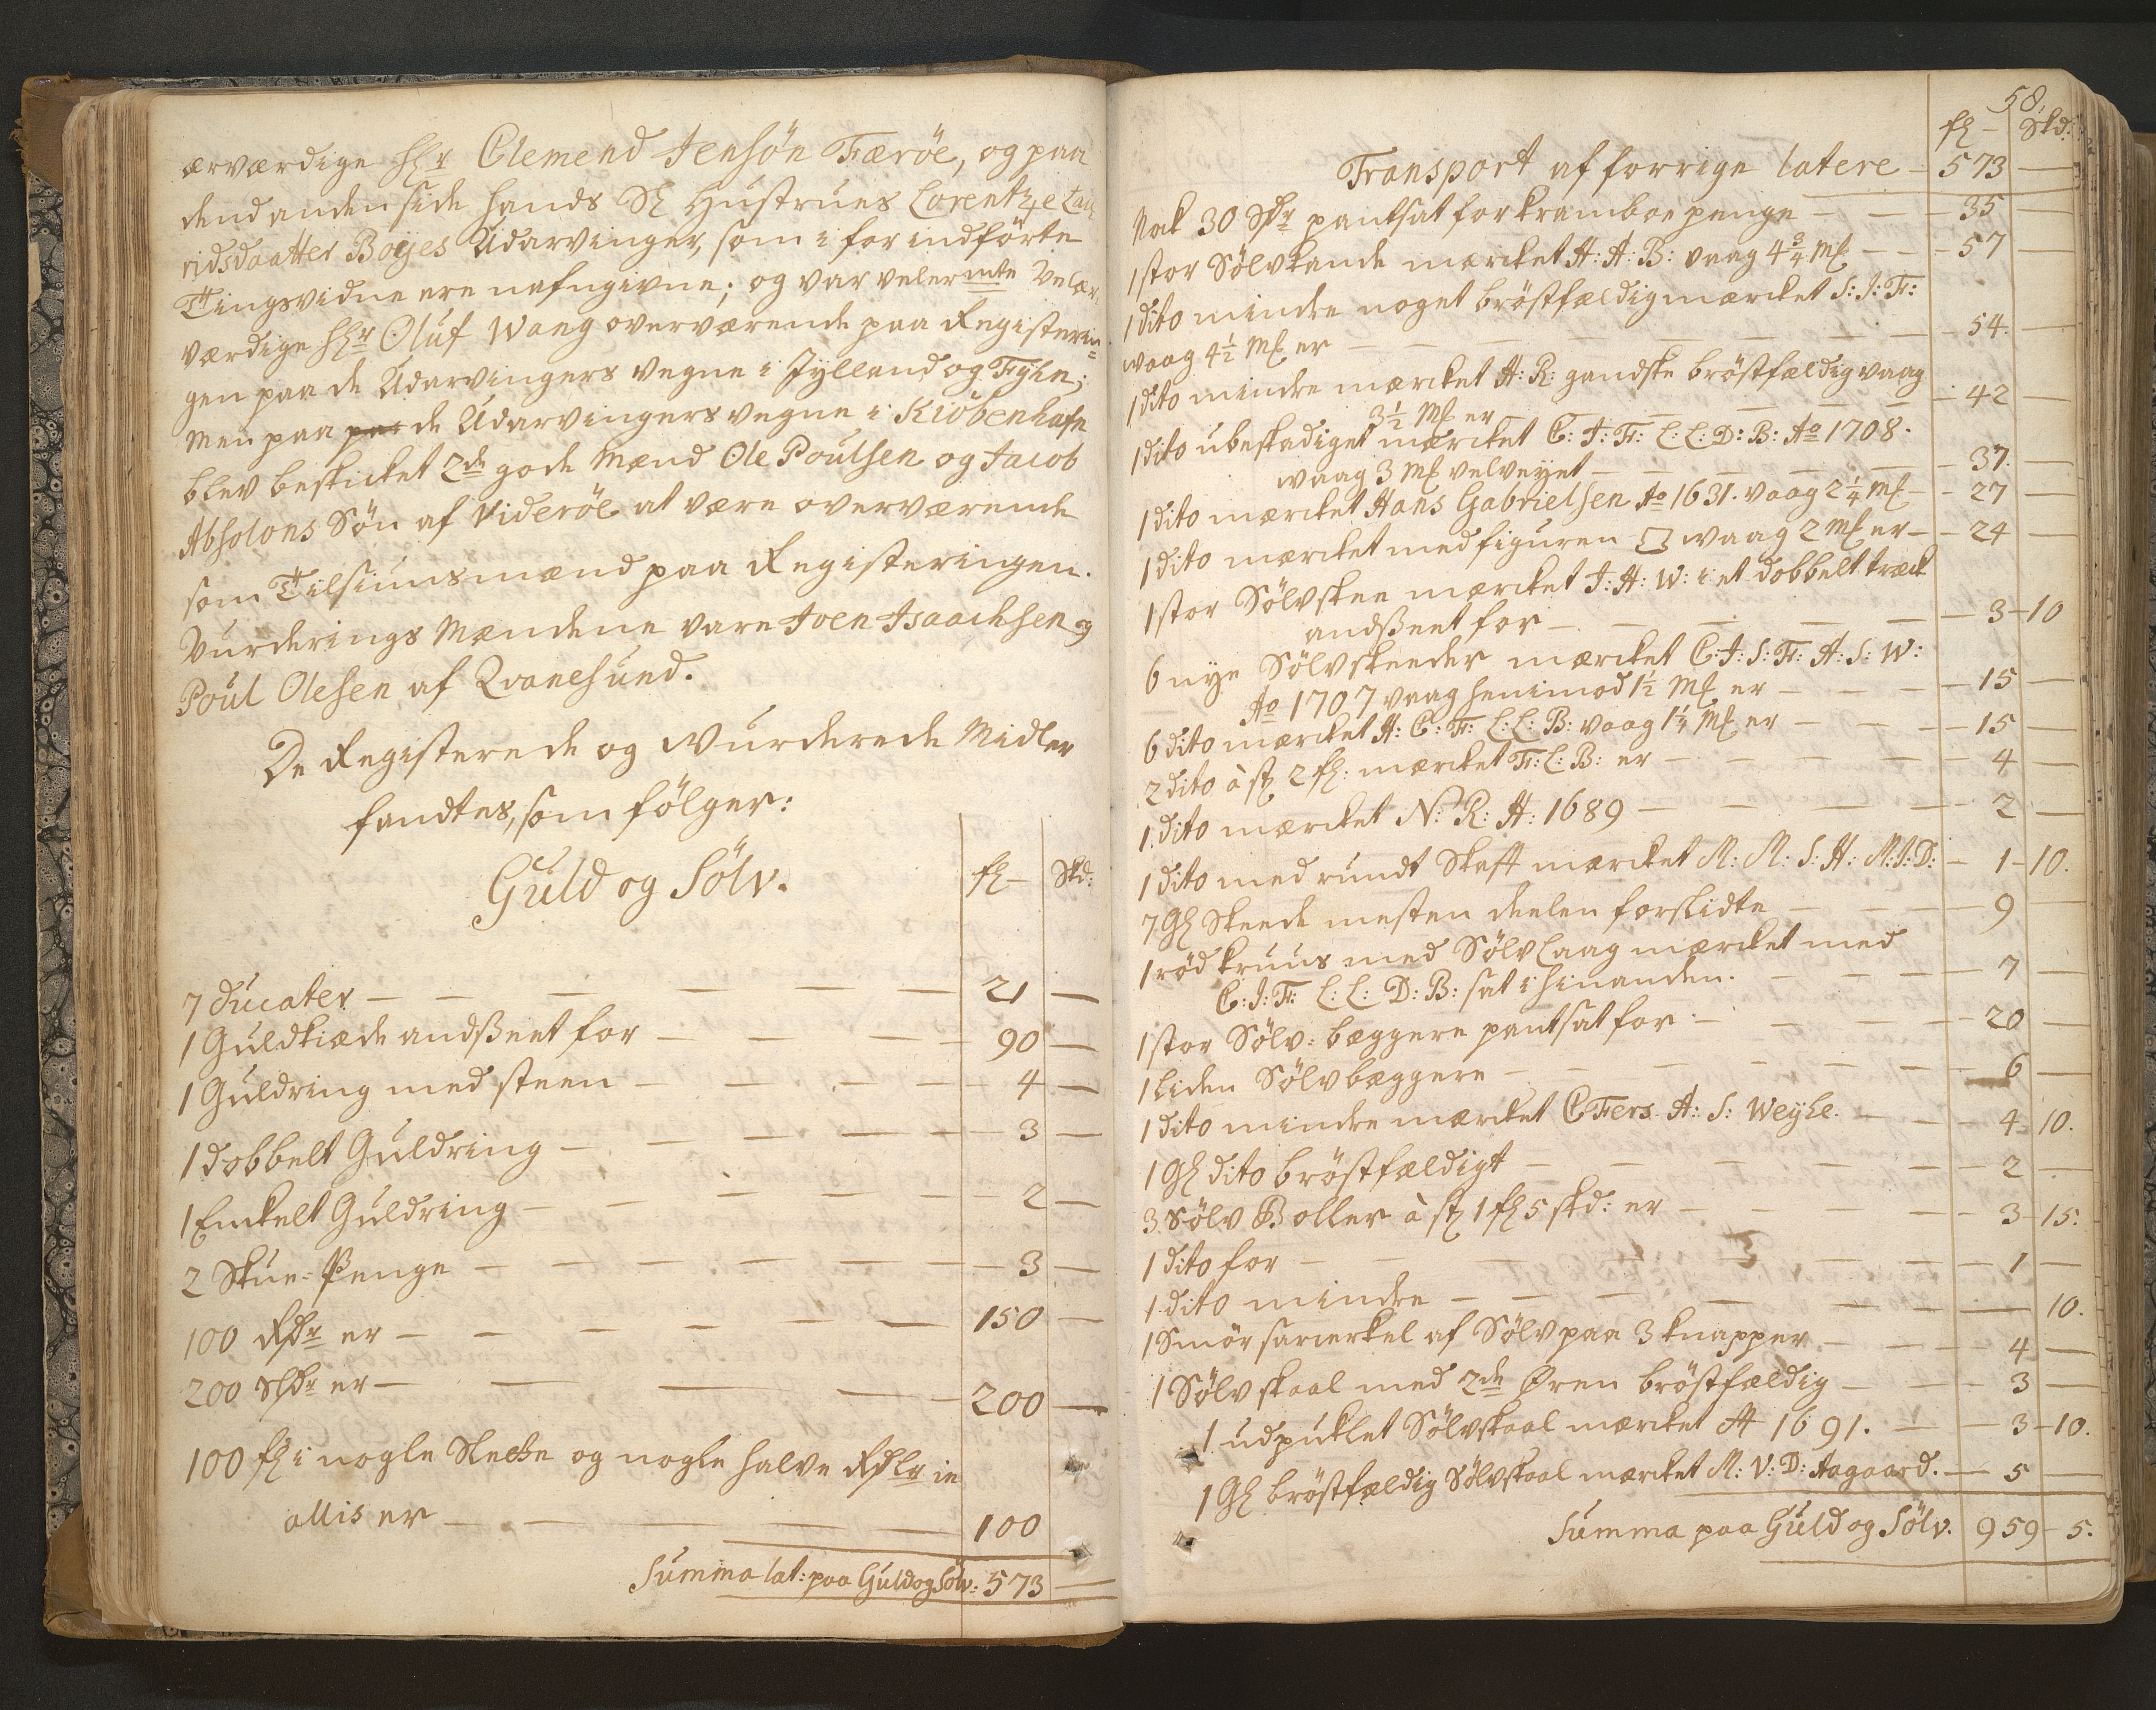 ærværdige Hr Clemend Jensøn Færøe, og paa
dend anden side hands Sl Hustrues Lorentze Lau
ridsdaatter Boyes Udarvinger, som i for indførte
Tingsvidne ere nafngivne; og var velermte Velær-
værdige Hr Oluf Wang overværende paa Registerin=
gen paa de Udarvingers vegne i Jylland og Fyhn;
Men paa de Udarvingers vegne i Kiøbenhafn
blev beskicket 2de gode Mænd Ole Poulsen og Jacob
Absolons Søn af Viderøe at være overværende
som Tilsiunsmænd paa Registeringen.
Vurderings Mændene vare Joen Isaachsen og
Poul Olesen af Qvanesund.
De Registerede og Vurderede Midler
fandtes, som følger:
Guld og Sølv. fl Skd:
7 Ducater 21
1 Guldkiæde andsseet for 90
1 Guldring med steen 4
1 dobbelt Guldring 3
1 Enkelt Guldring 2
2 Skue-Penge 3
100 Rdr er 150
200 Sldr er 200
100 fl i nogle Slecke og nogle halve Rdlr in
allis er 100
Summa lat: paa Guld og Sølv: 573
58.
fl Skd:
Transport af forrige latere 573
Nok 30 Sldr pantsat for kramboe penge 35
1 stor Sølvkande mærcket H: A: B: vaag 4 3/4 Mk 57
1 dito mindre noget brøstfældig mærcket S: J: F:
waag 4 1/2 Mk er 54.
1 dito mindre mærcket H: R: gandske brøstfældig vaag
3 1/2 Mk er 42
1 dito ubeskadiget mærcket C: J: F: L: L: D: B: Ao 1708.
waag 3 Mk velveyet 37.
1 dito mærcket Hans Gabrielsen Ao 1631. vaag 2 1/4 Mk 27
1 dito mærcket med figuren waag 2 Mk er 24
1 stor Sølvskee mærcket J: H: W: i et dobbelt træck
andsseet for 3-10
6 nye Sølvskeeder mærcket C: J: S: F: A: S: W:
Ao 1707 vaag henimod 1 1/2 Mk er 15
6 dito mærcket H: C: F: L: L: B: vaag 1 1/4 Mk er 15
2 dito à st 2 fl: mærcket F: L: B: er 4
1 dito mærcket N: R: H: 1689 2
1 dito med rundt Skaft mærcket M: M: S: H: M: J: D: 1-10.
7 Gl Skeede mesten deelen forslidte 9
1 rød kruus med Sølv Laag mærcket med
C: J: F: L: L: D: B: sat i hinanden. 7
1 stor Sølv: bæggere pantsat for 20
1 liden Sølvbæggere 6
1 dito mindre mærcket C Fers. A: S: Weyhe. 4 10.
1 Gl dito brøstfældigt 2
3 Sølv Boller à st 1 fl 5 skd: er 3-15.
1 dito for 1
1 dito mindre 10.
1 Smør af Sølv paa 3 knapper 4
1 Sølv skaal med 2de Øren brøstfældig 3
1 udpuklet Sølvskaal mærcket A 1691. 3-10.
1 Gl brøstfældig Sølvskaal mærcket M: V: D: Aagaard. 5
Summa paa Guld og Sølv. 959 5.